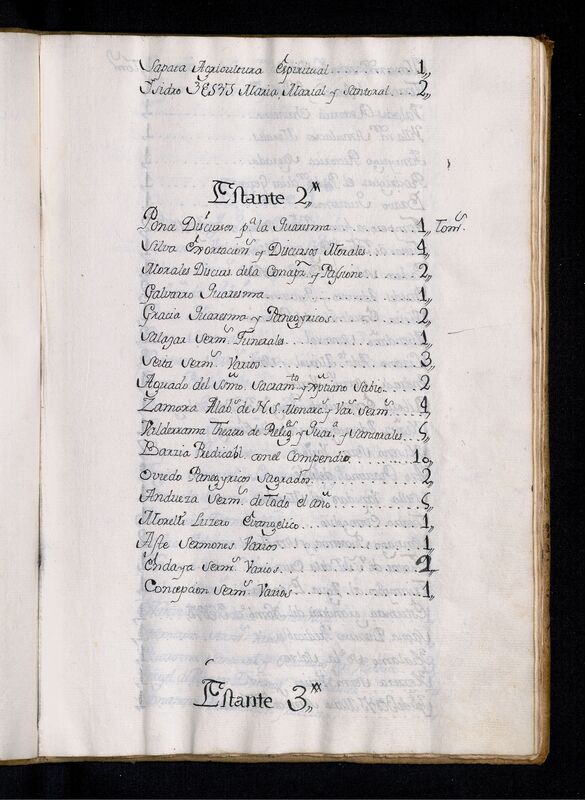 Sapata Agricultura Espiritual 1,,
Isidro JESVS Maria, Marial y Santoral. 2,,
Estante 2,,
Ponze Discursos pa. la Quaresma 1,, Toms.
Silva Exortacions. y Discursos Morales.. 4,,
Morales Discurs. de la Concepn. y Passione.. 2,,
Galvarro Quaresma 1,,
Gracia Quaresma y Panegyricos 2,,
Salazar Serms. Funerales 1,,
Seita Serms. Varios 3,,
Aguado del Smo. Sacramto. y Xptiano Sabio.. 2
Zamora Alabs. de N. S. Monarc. y Vars. Serms. 4
Valderrama Theatro de Religs. y Quara. y Santorales.. 5,,
Barzia Predicabl. con el Compendio 10,,
Oviedo Panegyricos Sagrados. 2,,
Andueza Serms. de todo el año 5,,
Morette Luzero Evangelico 1,,
Aste Sermones Varios 1,,
Endaya Serms. Varios 2
Concepcion Serms. Varios 1,,
Estante 3,,